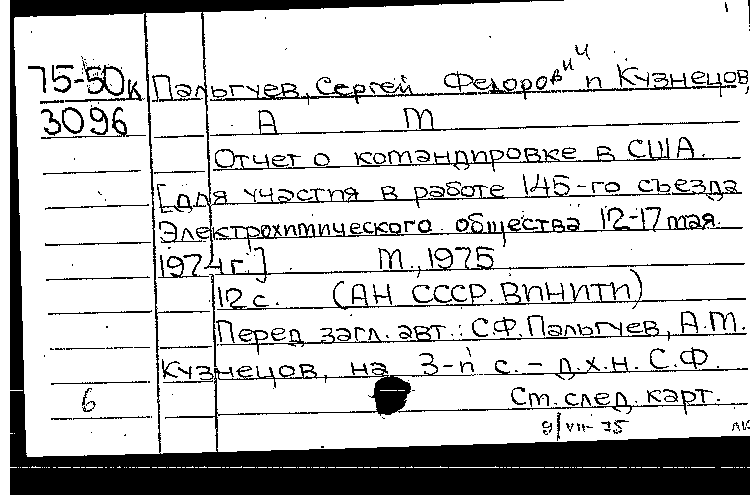 75-50к Пальгуев, Сергей Федорович и Кузнецов,
3096 А М
Отчет о командировке в США.
[для участия в работе 145-го съезда
Электрохимического общества 12-17 мая.
1974 г.] М., 1975
12 с. (АН СССР. ВИНИТИ)
Перед загл. авт.: С.Ф. Пальгуев, А.М.
Кузнецов, на 3-й с. – д.х.н. С.Ф.
6 См. след. карт.
9/VII-75